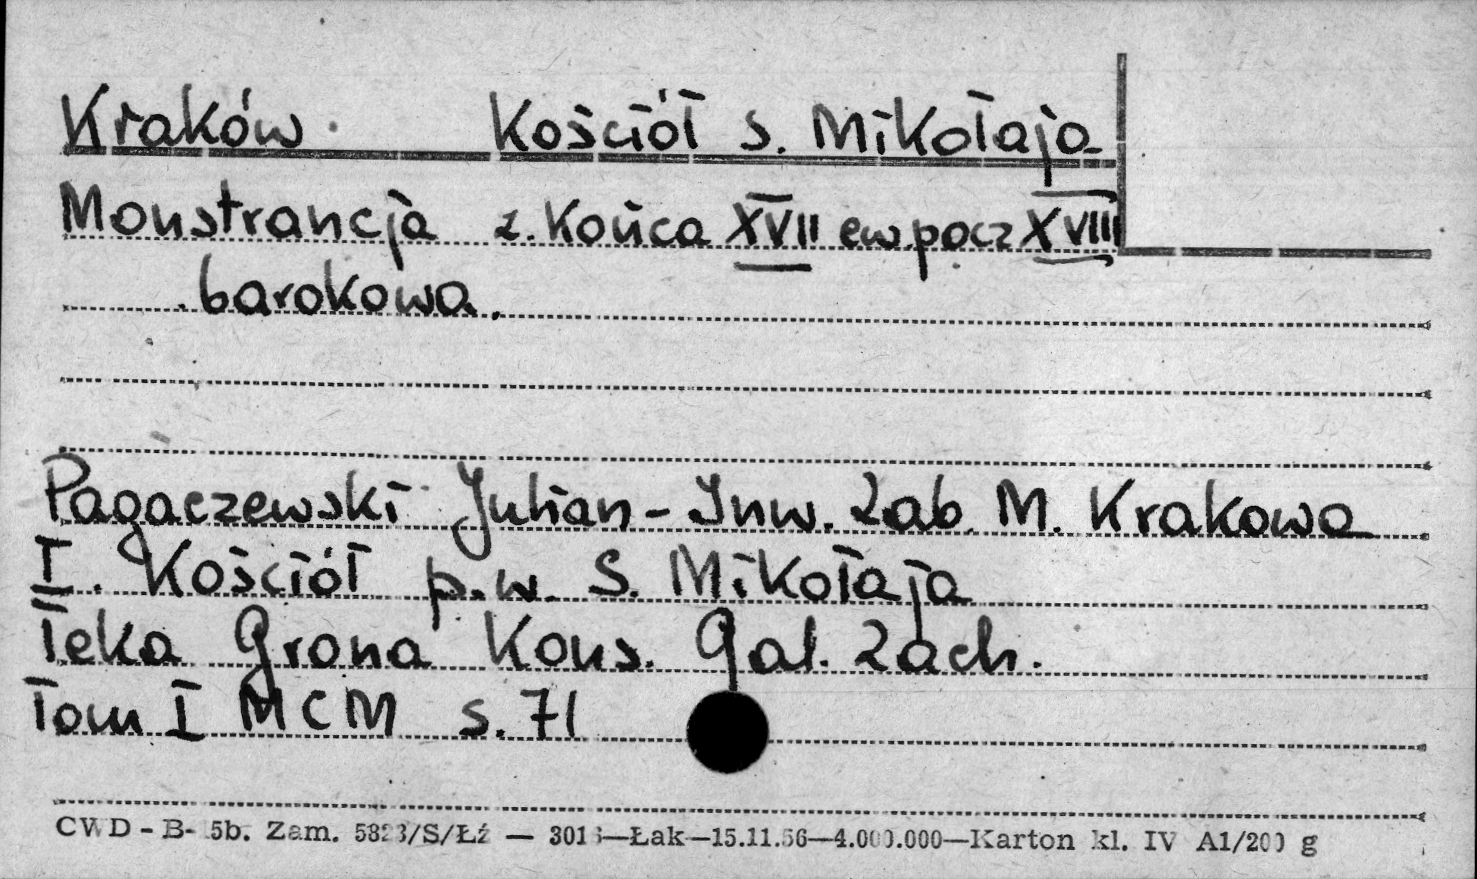 Kraków Kościół s. Mikołaja
Monstrancja z. Końca XVII ew pocz XVIII
barokowa.
Pagaczewski Julian - Inw. Zab. M. Krakowa
I. Kościół p.w. S. Mikołaja
Teka Grona Kons. Gal. Zach.
Tom I MCM s. 71
CWD - B- 5b. Zam. 5823/S/Łź — 3016—Łak—15.11.56—4.000.000—Karton kl. IV A1/200 g